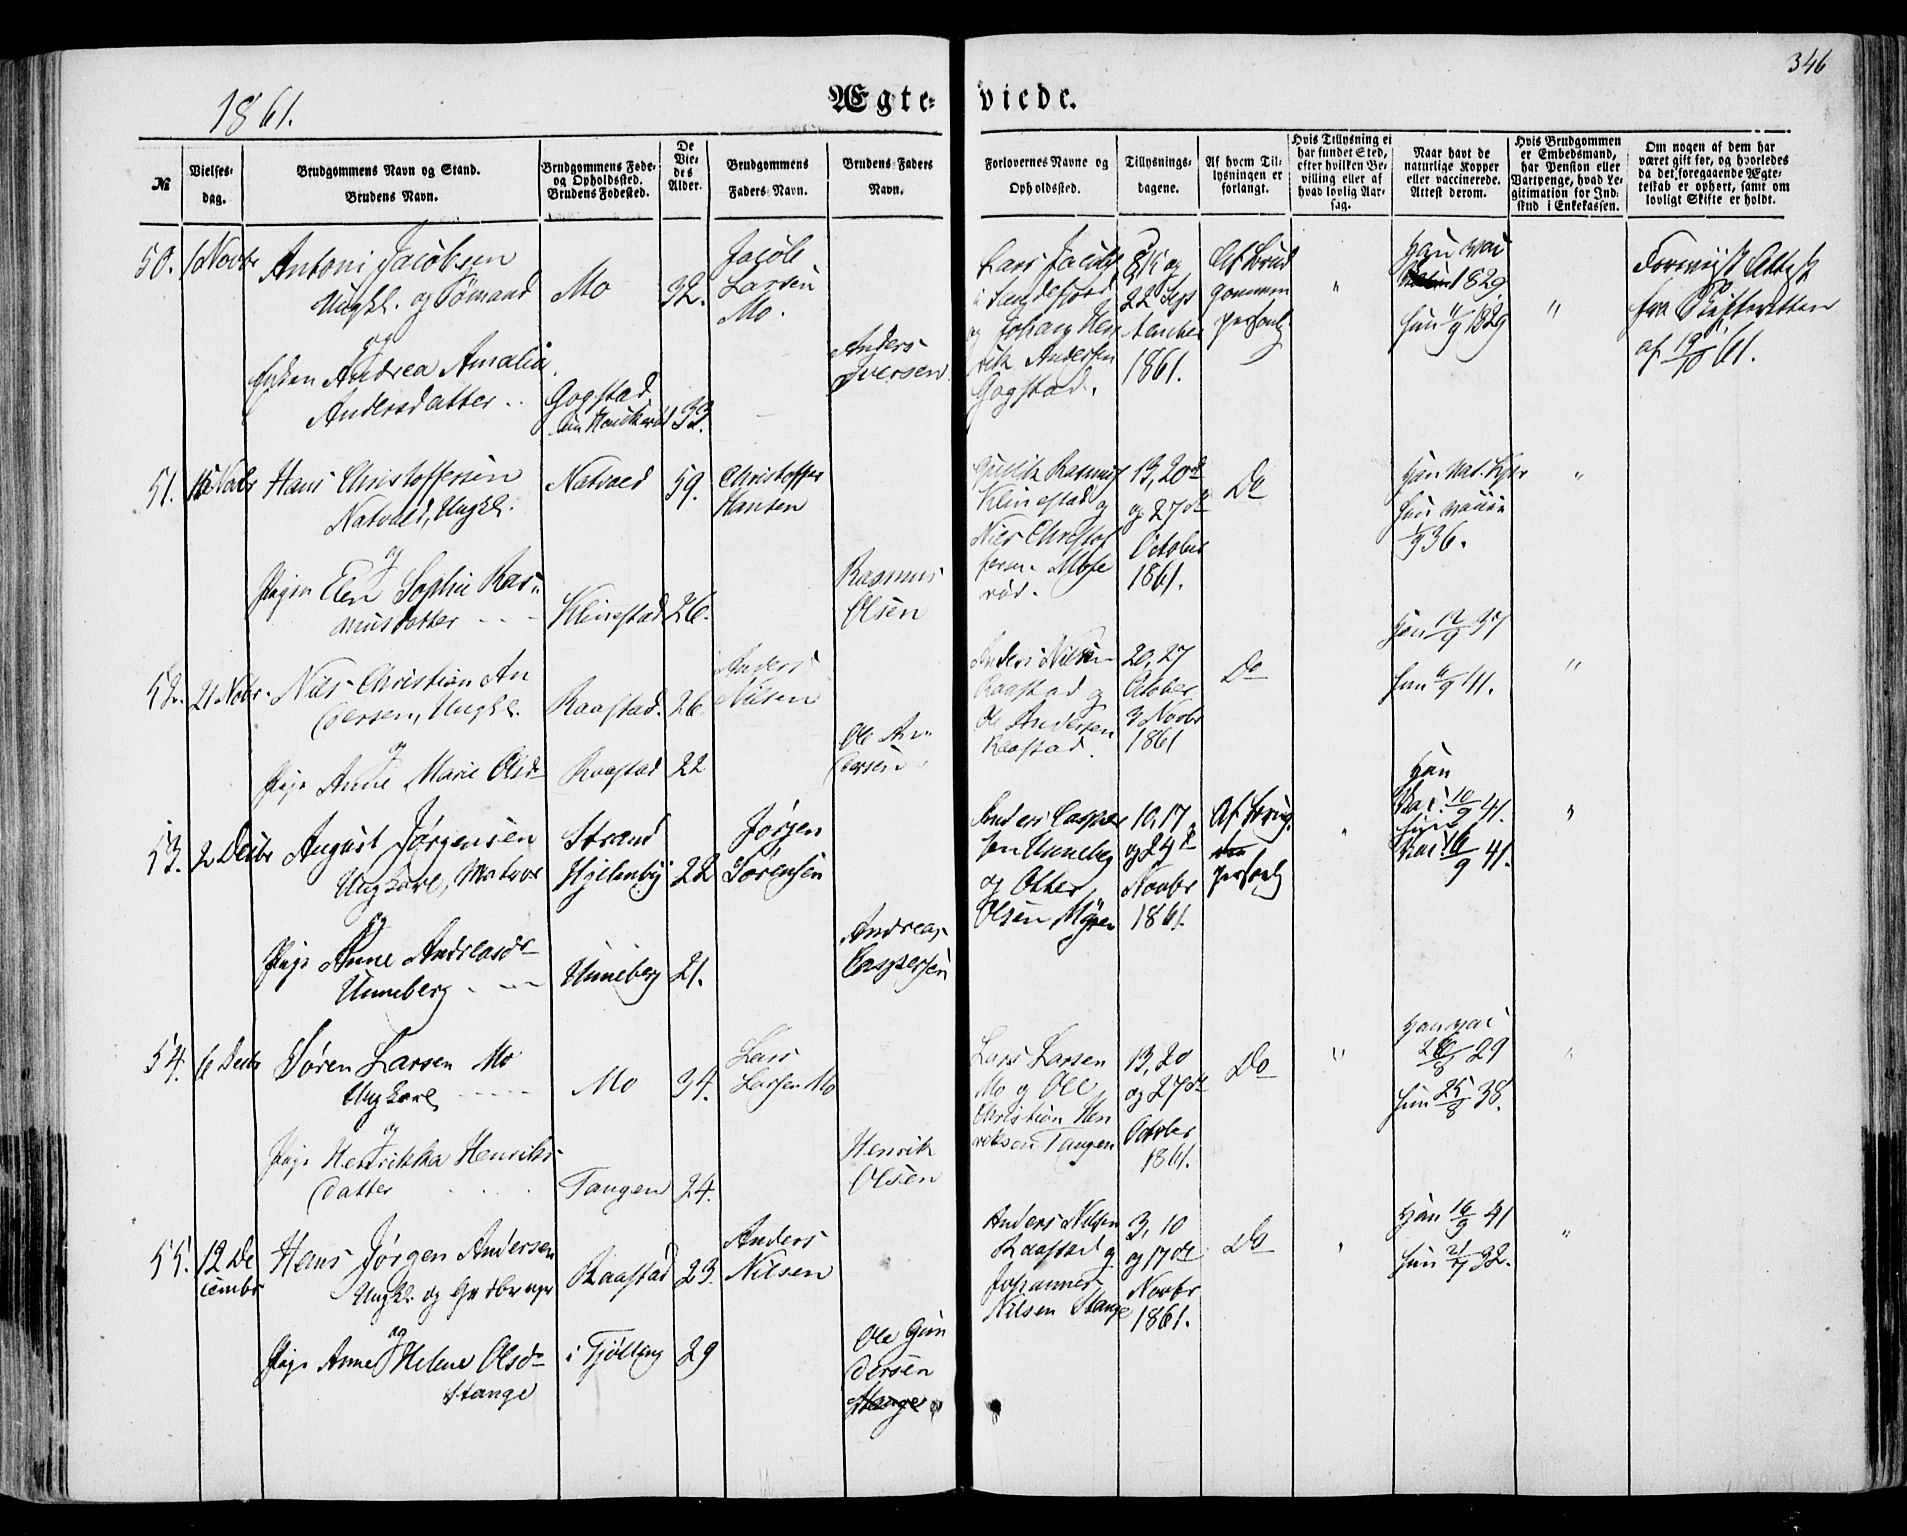 346
1861.
Ægte-
viede.
№
Vielses-
dag.
Brudgommens Navn og Stand.
Brudens Navn.
Brudgommens Føde-
og Opholdssted.
Brudens Fødested.
De
Vie-
des
Alder.
Brudgommens
Faders Navn.
Brudens Faders
Navn.
Forlovernes Navne og
Opholdssted.
Tillysnings-
dagene.
Af hvem Til-
lysningen er
forlangt.
Hvis Tillysning ei
har fundet Sted,
efter hvilken Be-
villing eller af
hvad lovlig Aar-
sag.
Naar havt de
naturlige Kopper
eller vaccinerede.
Attest derom.
Hvis Brudgommen
er Embedsmand,
har Pension eller
Vartpenge, hvad Le-
gitimation for Ind-
skud i Enkekassen.
Om nogen af dem har
været gift før, og hvorledes
da det foregaaende Ægte-
skab er ophørt, samt om
lovligt Skifte er holdt.
50.
1 Novbr
Antoni Jacobsen
Ungkl. og Sømand
og
Enken Andrea Amalia
Andersdatter
Mo
Gogstad
32.
33.
Jacob
Larsen
Mo.
Anders
Iversen
Lars Jacobs
i Sandefjord
og Johan Hen
rik Andersen
Gogstad.
8, 15 og
22 Sep
tember
1861.
Af Brud
gommen
personl.
"
Han vac
1829
Hun 11/9 1829
"
Foreviist Attest
fra Skifteretten
af 19/10 61.
51.
15 Nobr
Hans Christoffersen
Natvald, Ungkl.
og
Pigen Elen Sophie Ras-
musdatter
Natvald
Klinestad
59.
26.
Christoffer
Hansen
Rasmus
Olsen
Rasmus
Klinestad og
Nils Christof
fersen Mose
rød.
13, 20de
og 27de
October
1861.
Do
Han nat. Kopr
Hun vacc
36.
"
52.
21 Nobr.
Nils Christian An
dersen, Ungkl.
og
Pige Anne Marie Olsd
Raastad.
Raastad
26.
22
Anders
Nilsen
Ole An-
dersen
Anders Nilsen
Raastad og
Ole Andersen
Raastad.
20, 27
October
3 Novbr
1861
Do
Han 12/9 37
Hun 6/9 41.
"
53.
2 Decbr
August Jørgensen
Ungkarl, Matros
og
Pige Anne Andreasdr
Unneberg
Strand
Hjelmby
Unneberg
22
21.
Jørgen
Sørensen
Andreas
Caspersen
Anders Casper
sen Unneberg
og Otter
Olsen Myren
10, 17
og 24de
Novbr
1861.
Af Brudg.
personl
"
Han
vac. 10/9 41.
Hun
vac. 16/9 41.
"
54.
6 Decbr
Søren Larsen Mo
Ungkarl
og
Pige Henrikka Henriks-
datter
Mo
Tangen
34.
24.
Lars
Larsen Mo
Henrik
Olsen
Lars Larsen
Mo og Ole
Christian Hen
riksen Tangen
13, 20
og 27de
October
1861.
Do
"
Han vac
26/8 29
Hun 25/8 38.
"
55.
12 De
cembr
Hans Jørgen Andersen
Ungkl. og Gaardbruger
og
Pige Anne Helene Olsd
Stange
Raastad
i Tjølling
23.
29
Anders
Nilsen
Ole Gun
dersen
Stange
Anders Nilsen
Raastad og
Johannes
Nilsen Stange
3, 10
og 17de
Novbr
1861.
Do
"
Han 16/9 41
Hun 21/7 32.
"